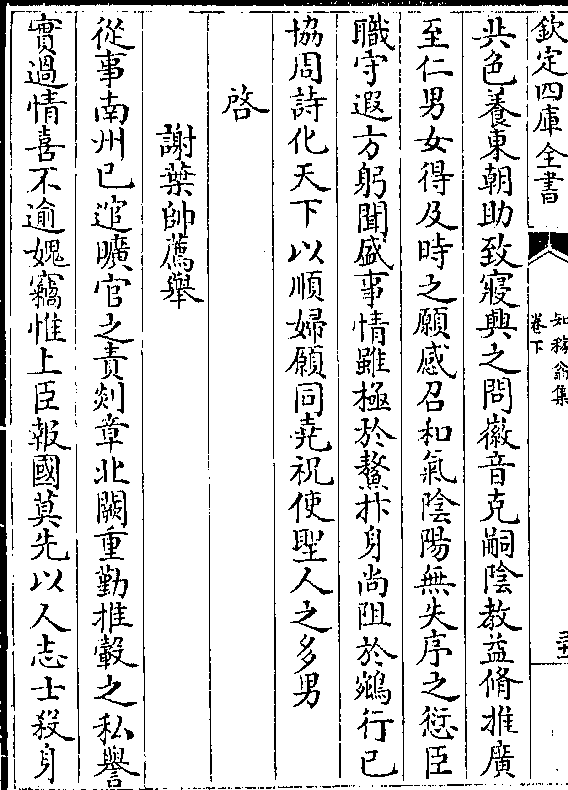 欽定四庫全書
知稼翁集
卷下
共色養東朝助致寢興之問徽音克嗣陰教益脩推廣
至仁男女得及時之願感召和氣陰陽無失序之愆臣
職守遐方躬聞盛事情雖極於鼇抃身尚阻於鵷行已
協周詩化天下以順婦願同堯祝使聖人之多男
啓
謝葉帥薦舉
從事南州已逭曠官之責剡章北闕重勤推轂之私譽
實過情喜不逾媿竊惟上臣報國莫先以人志士殺身